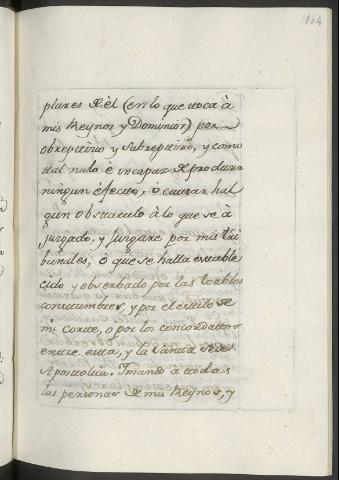 104
plares de èl (en lo que toca à
mis Reynos y Dominios) por
obreptitio y subreptitio, y como
tal nulo è incapaz de producir
ningun efecto, ò causar hal
gun obstaculo à lo que se à
juzgado, y juzgare por mis tri
bunales, ò que se halla estable
cido y observado por las loables
constumbres, y por el estilo de
mi corte, o por los concordatos
entre esta, y la Santa Sede
Apostolica. Imando à todas
las personas de mis Reynos, y